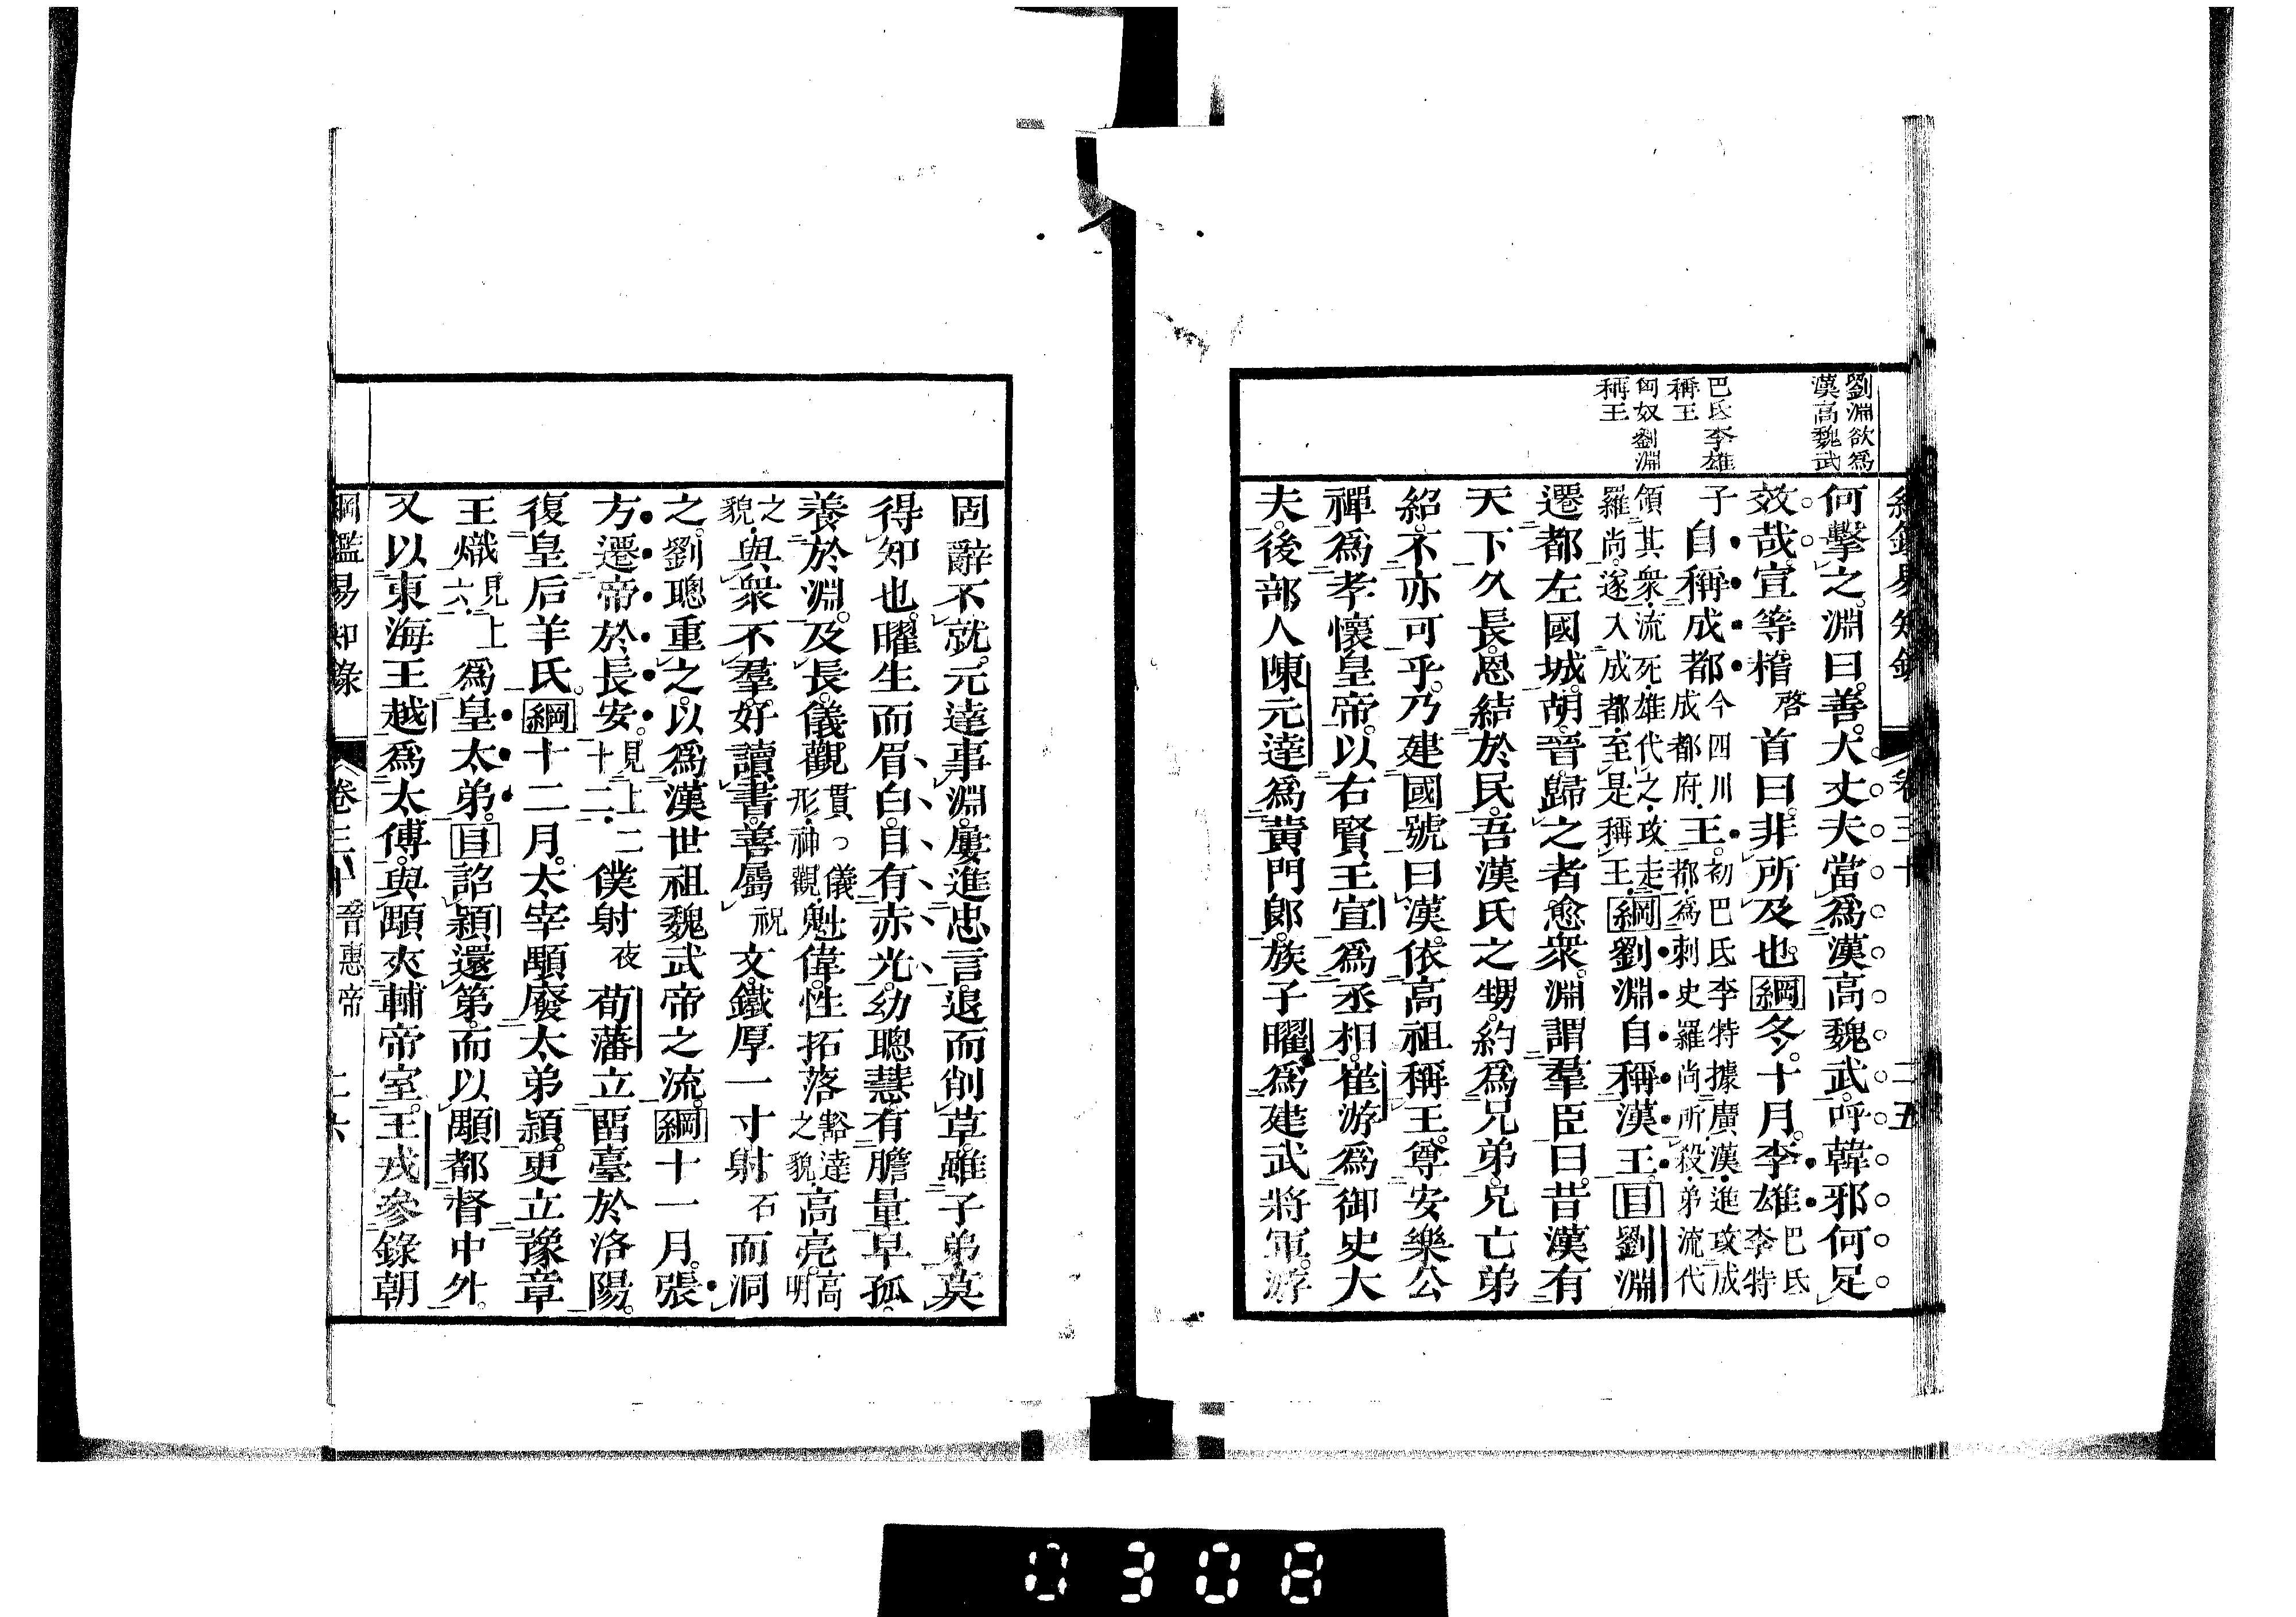 劉淵欲爲
漢高魏武
巴氐李雄
稱王
匈奴劉淵
稱王
何擊之淵曰善大丈夫當爲漢高魏武呼韓邪何足
效哉宣等稽啓首曰非所及也綱冬十月李雄巴氐李特
子自稱成都今四川成都府王初巴氐李特據廣漢進攻成都爲刺史羅尚所殺弟流代
領其衆流死雄代之攻走羅尚遂入成都至是稱王綱劉淵自稱漢王目劉淵
遷都左國城胡晉歸之者愈衆淵謂羣臣曰昔漢有
天下久長恩結於民吾漢氏之甥約爲兄弟兄亡弟
紹不亦可乎乃建國號曰漢依高祖稱王尊安樂公
禪爲孝懷皇帝以右賢王宣爲丞相崔游爲御史大
夫後部人陳元達爲黃門郎族子曜爲建武將軍游
固辭不就元達事淵屢進忠言退而削草雖子弟莫
得知也曜生而眉白自有赤光幼聰慧有膽量早孤
養於淵及長儀觀貫儀形神觀魁偉性拓落豁達之貌高亮高明
之貌與衆不羣好讀書善屬祝文鐵厚一寸射石而洞
之劉聰重之以爲漢世祖魏武帝之流綱十一月張
方遷帝於長安見上二十二僕射夜荀藩立畱臺於洛陽
復皇后羊氏綱十二月太宰顒廢太弟穎更立豫章
王熾見上六爲皇太弟目詔穎還第而以顒都督中外
又以東海王越爲太傅與顒夾輔帝室王戎參錄朝
綱鑑易知錄 卷三十 晉惠帝 二六